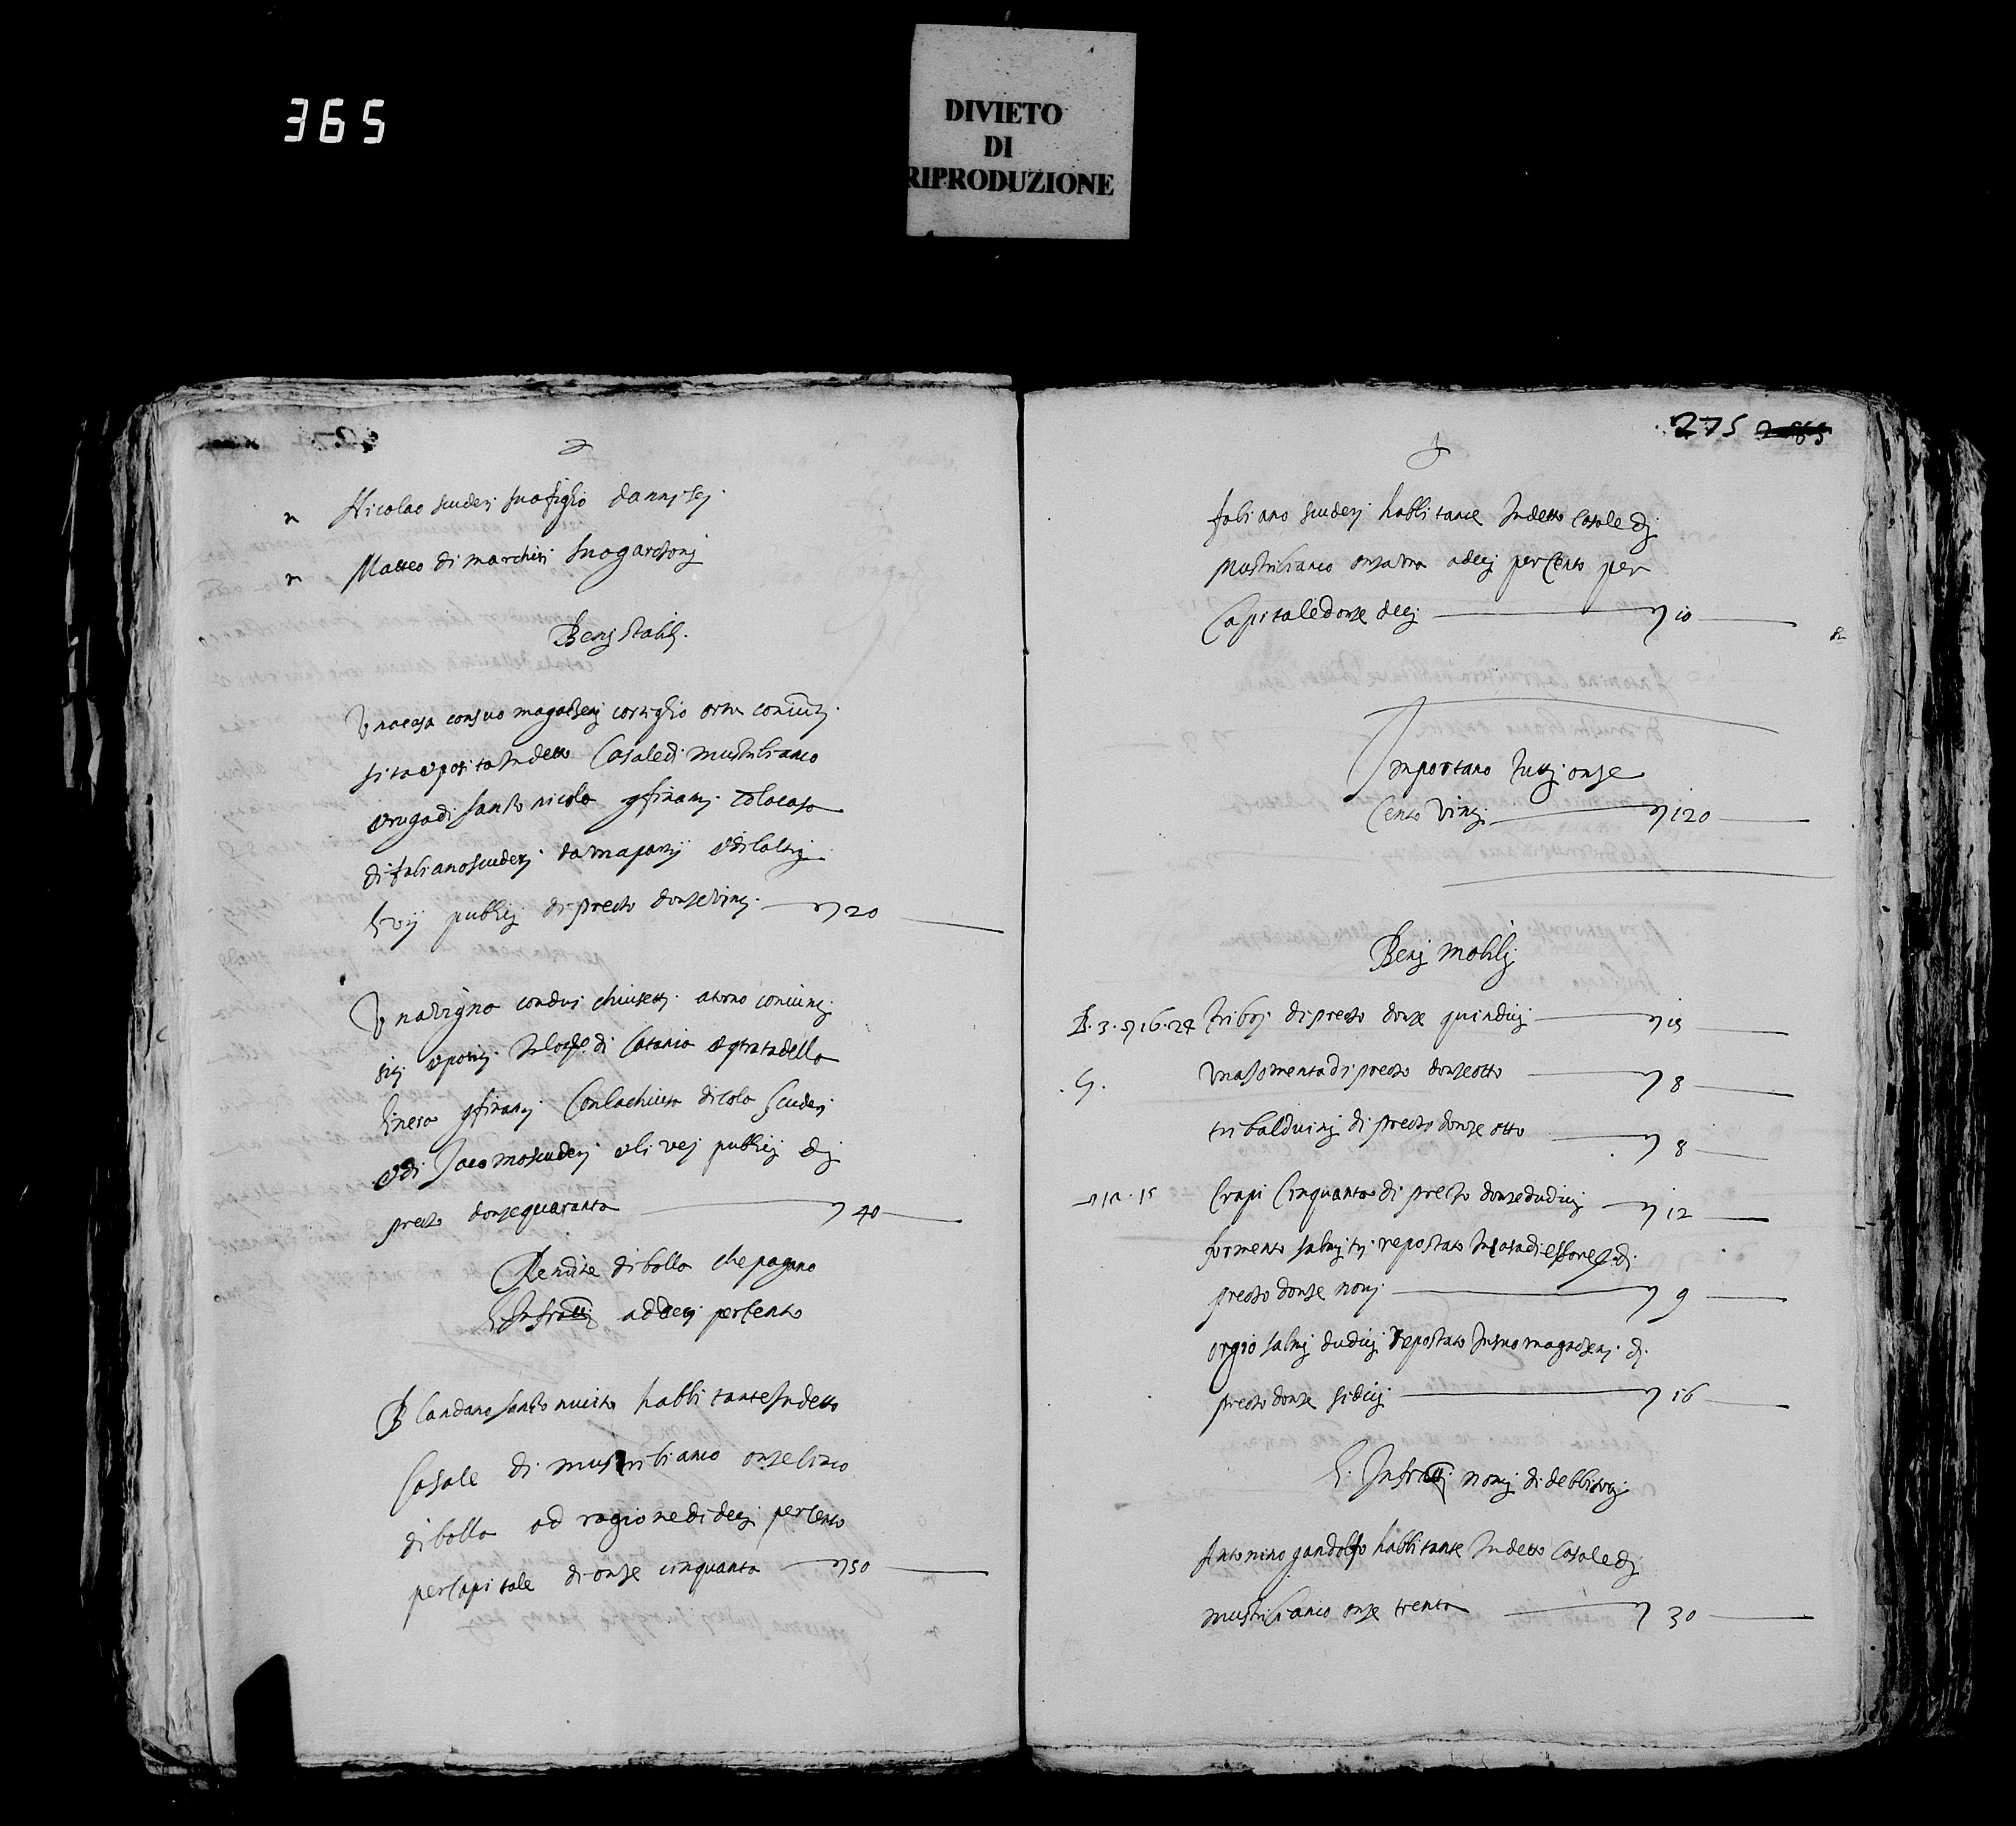 365
DIVIETO
DI
RIPRODUZIONE
Nicolao scuderj suo figlio d annj sej
Matteo di marchisi suo garsonj
Benj stabilj.
Una casa con suo magasenj cortiglio orto
sita et posita In detto Casale di mustirbianco
et ruga di santo nicola cola casa
di fabiano scuderj da una partj et di l altrj
li vij publicj di preczo d onze vintj 20
Una vigna con duj chiusettj atorno
et positj di Catania della
linera Con la chiusa di cola Scuderj
et di Jacomo scuderj et li vej publicj dj
preczo d onze quaranta 40
Rendite di bolla che pagano
l Infrattj ad decj per cento
Blandano habbitante In detto
Casale di mustirbianco onze cinco
di bolla ad ragione di decj per cento
per Capitale di onze cinquanta 50
275
fabiano scuderj habbitante In detto Casale dj
Mustirbianco onza una a decj per Cento per
Capitale d onze decj 10
Importano tuttj onze
Cento vintj 120
Benj mobilj
3. 16. 24 tri boj di preczo d onze quindicj 15
una Jomenta di preczo d onze otto 8
tri balduinj di preczo d onze otto 8
Crapi Cinquanta di preczo d onze dudicj 12
formento salmj repostato In casa di
preczo d onze novj 9
orgio salmj dudicj repostato In suo magasenj dj
preczo d onze sidicj 16
l. Infrattj nomj di debbitorj
Antonino gandolfo habbitante In detto Casale dj
mustirbianco onze trenta 30